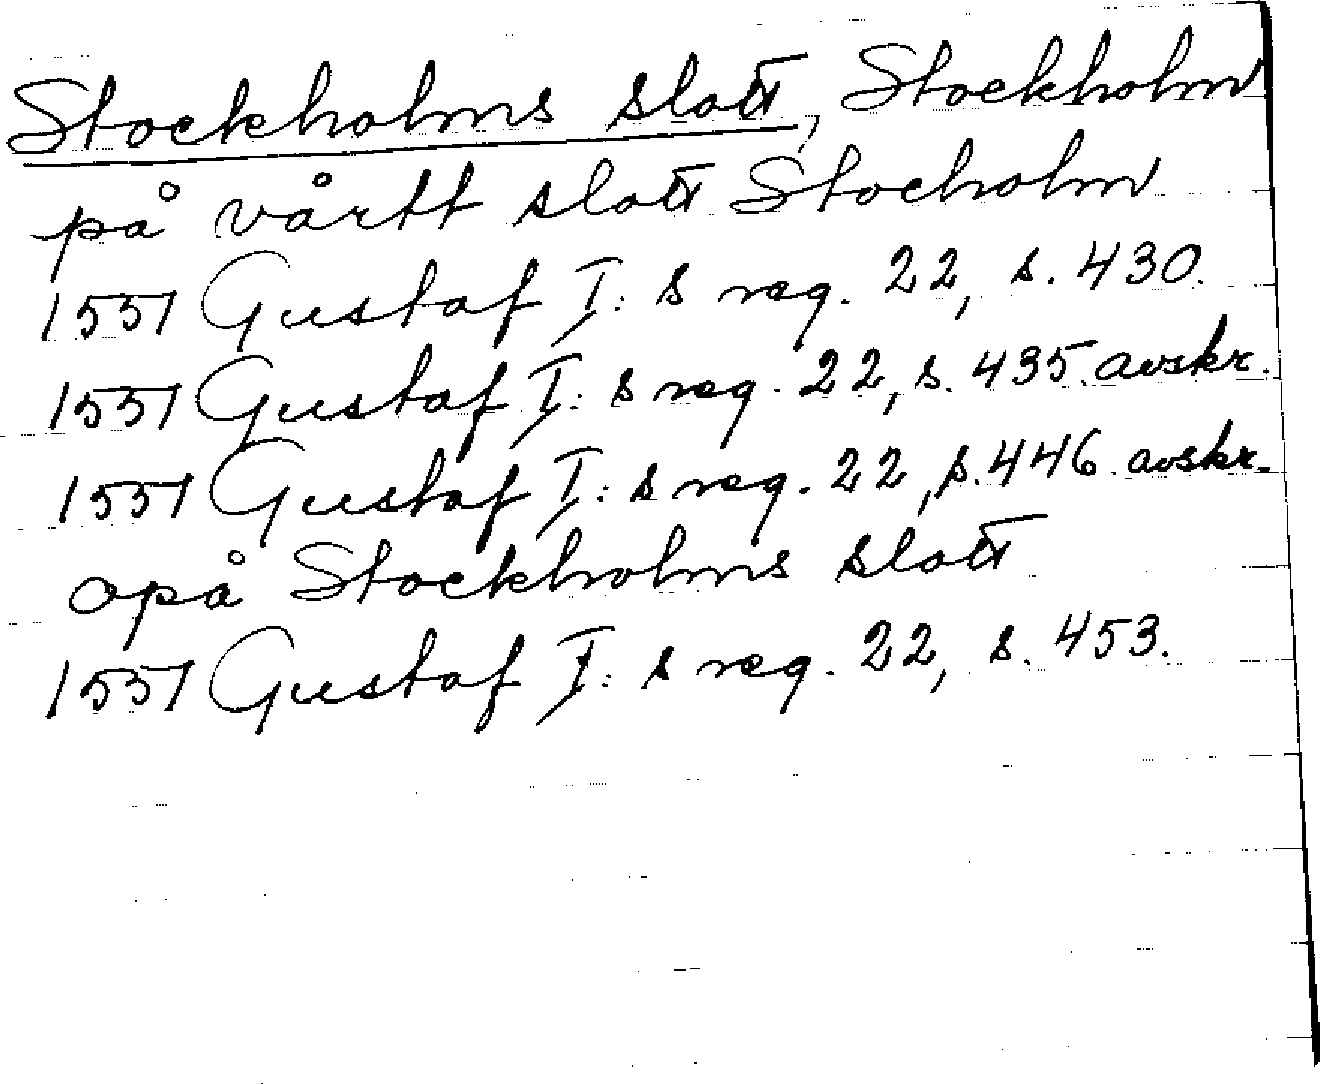 Stockholms slott, Stockholm
på vårtt slott Stocholm
1551 Gustaf I:s reg. 22, s. 430.
1551 Gustaf I:s reg. 22, s. 435. avskr.
1551 Gustaf I:s reg. 22, s. 446. avskr.
opå Stockholms slott
1551 Gustaf I:s reg. 22, s. 453.